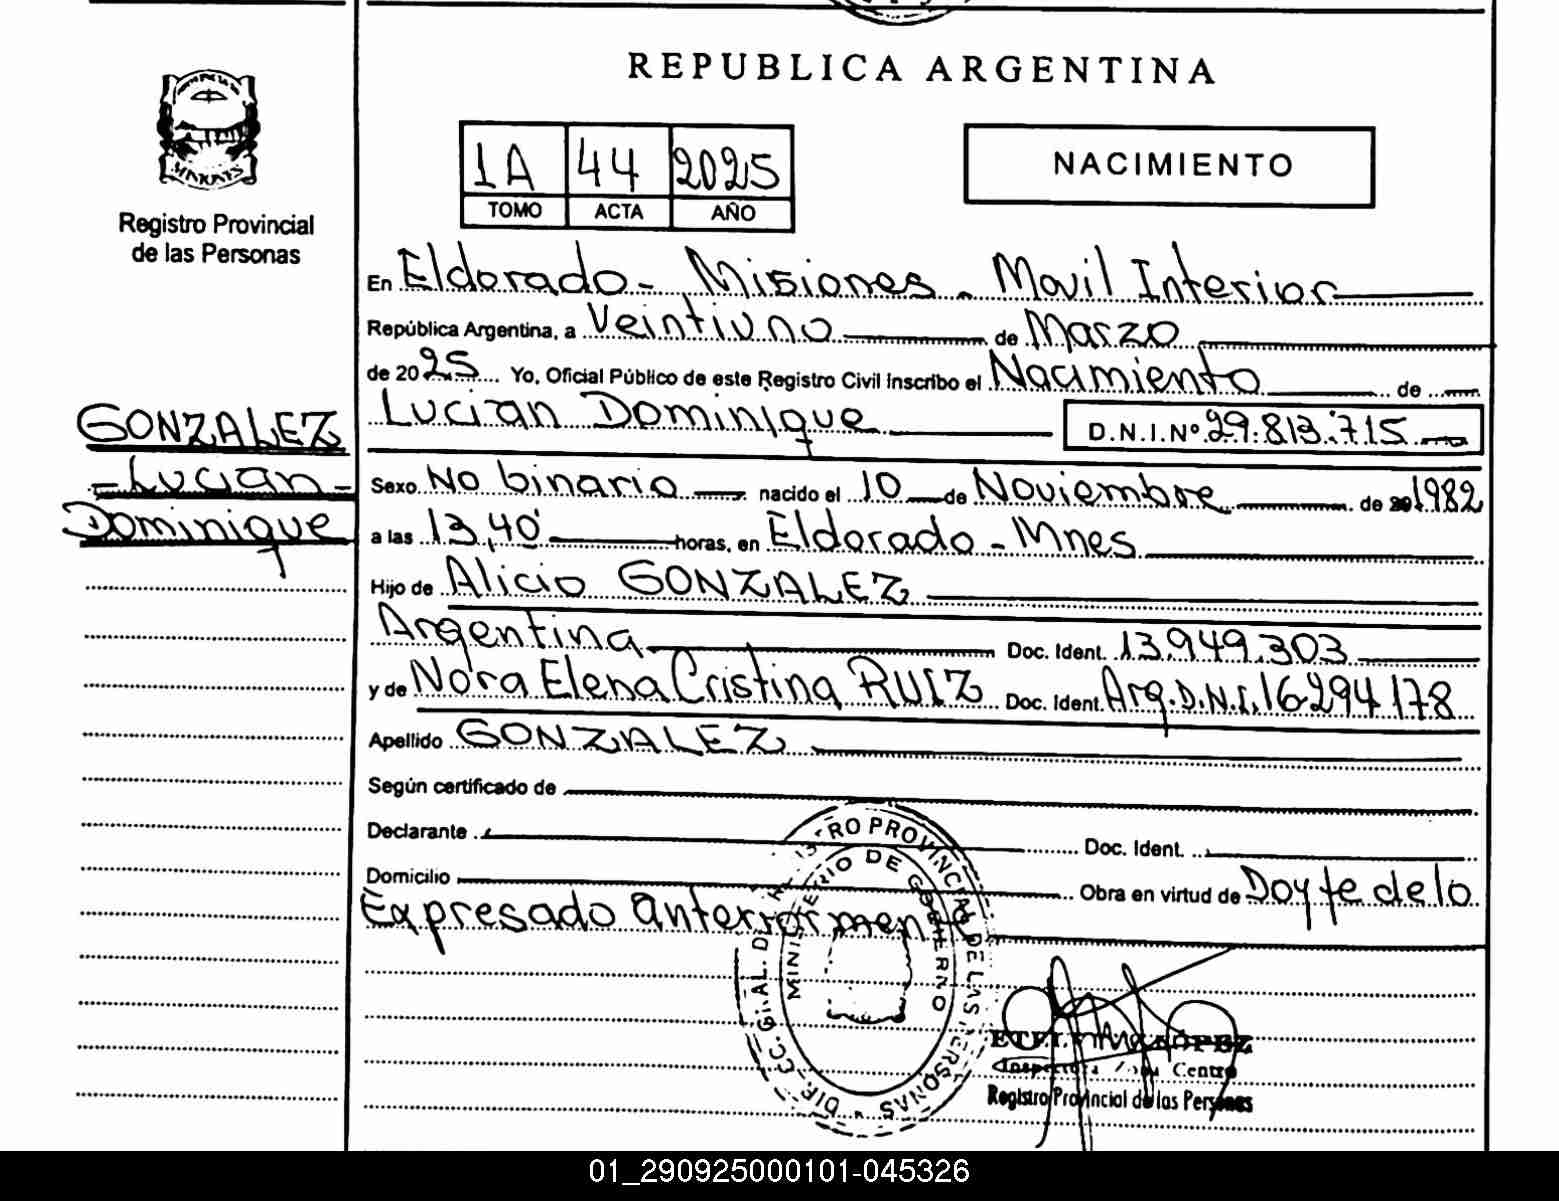 REPUBLICA ARGENTINA
MISIONES
Registro Provincial
de las Personas
1A 44 2025
TOMO ACTA AÑO
NACIMIENTO
En Eldorado - Misiones - Movil Interior
República Argentina, a Veintiuno de Marzo
de 2025 Yo, Oficial Público de este Registro Civil Inscribo el Nacimiento de
Lucian Dominique D.N.I.Nº 29.813.715
GONZALEZ
- Lucian -
Dominique
Sexo No binario nacido el 10 de Noviembre de 1982
a las 13,40' horas, en Eldorado - Mnes
Hijo de Alicio GONZALEZ
Argentina Doc. Ident. 13.949.303
y de Nora Elena Cristina RUIZ Doc. Ident. Arg. D.N.I. 16.294.178
Apellido GONZALEZ
Según certificado de
Declarante Doc. Ident.
Domicilio Obra en virtud de Doy fe de lo
Expresado anteriormente
REGISTRO PROVINCIAL DE LAS PERSONAS
MINISTERIO DE GOBIERNO
LOPEZ
Inspectora Zona Centro
Registro Provincial de las Personas
01_290925000101-045326